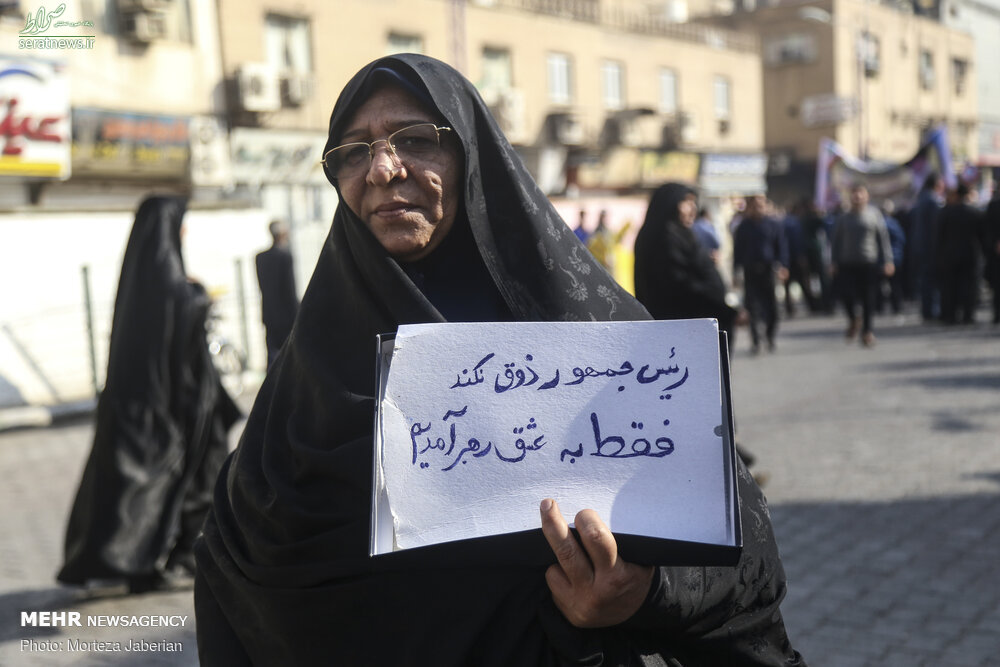 صراط
seratnews.ir
رئیس جمهور ذوق نکند
فقط به عشق رهبر آمدیم
MEHR NEWSAGENCY
Photo: Morteza Jaberian